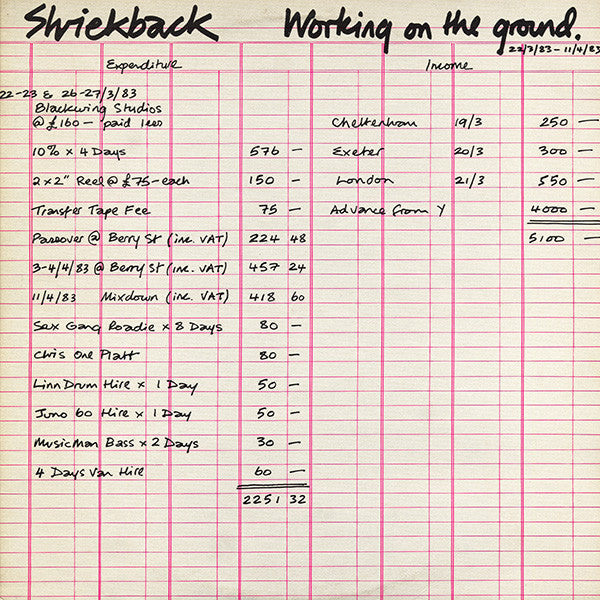 Shriekback Working on the ground.
22/3/83 – 11/4/83
Expenditure Income
22-23 & 26-27/3/83
Blackwing Studios
@ £160 – paid less Cheltenham 19/3 250 —
10% x 4 Days 576 — Exeter 20/3 300 —
2 x 2" Reel @ £75 – each 150 — London 21/3 550 —
Transfer Tape Fee 75 — Advance from Y 4000 —
Passover @ Berry St (inc. VAT) 224 48 5100 —
3-4/4/83 @ Berry St (inc. VAT) 457 24
11/4/83 Mixdown (inc. VAT) 418 60
Sex Gang Roadie x 8 Days 80 —
Chris One Platt 80 —
Linn Drum Hire x 1 Day 50 —
Juno 60 Hire x 1 Day 50 —
MusicMan Bass x 2 Days 30 —
4 Days Van Hire 60 —
2251 32